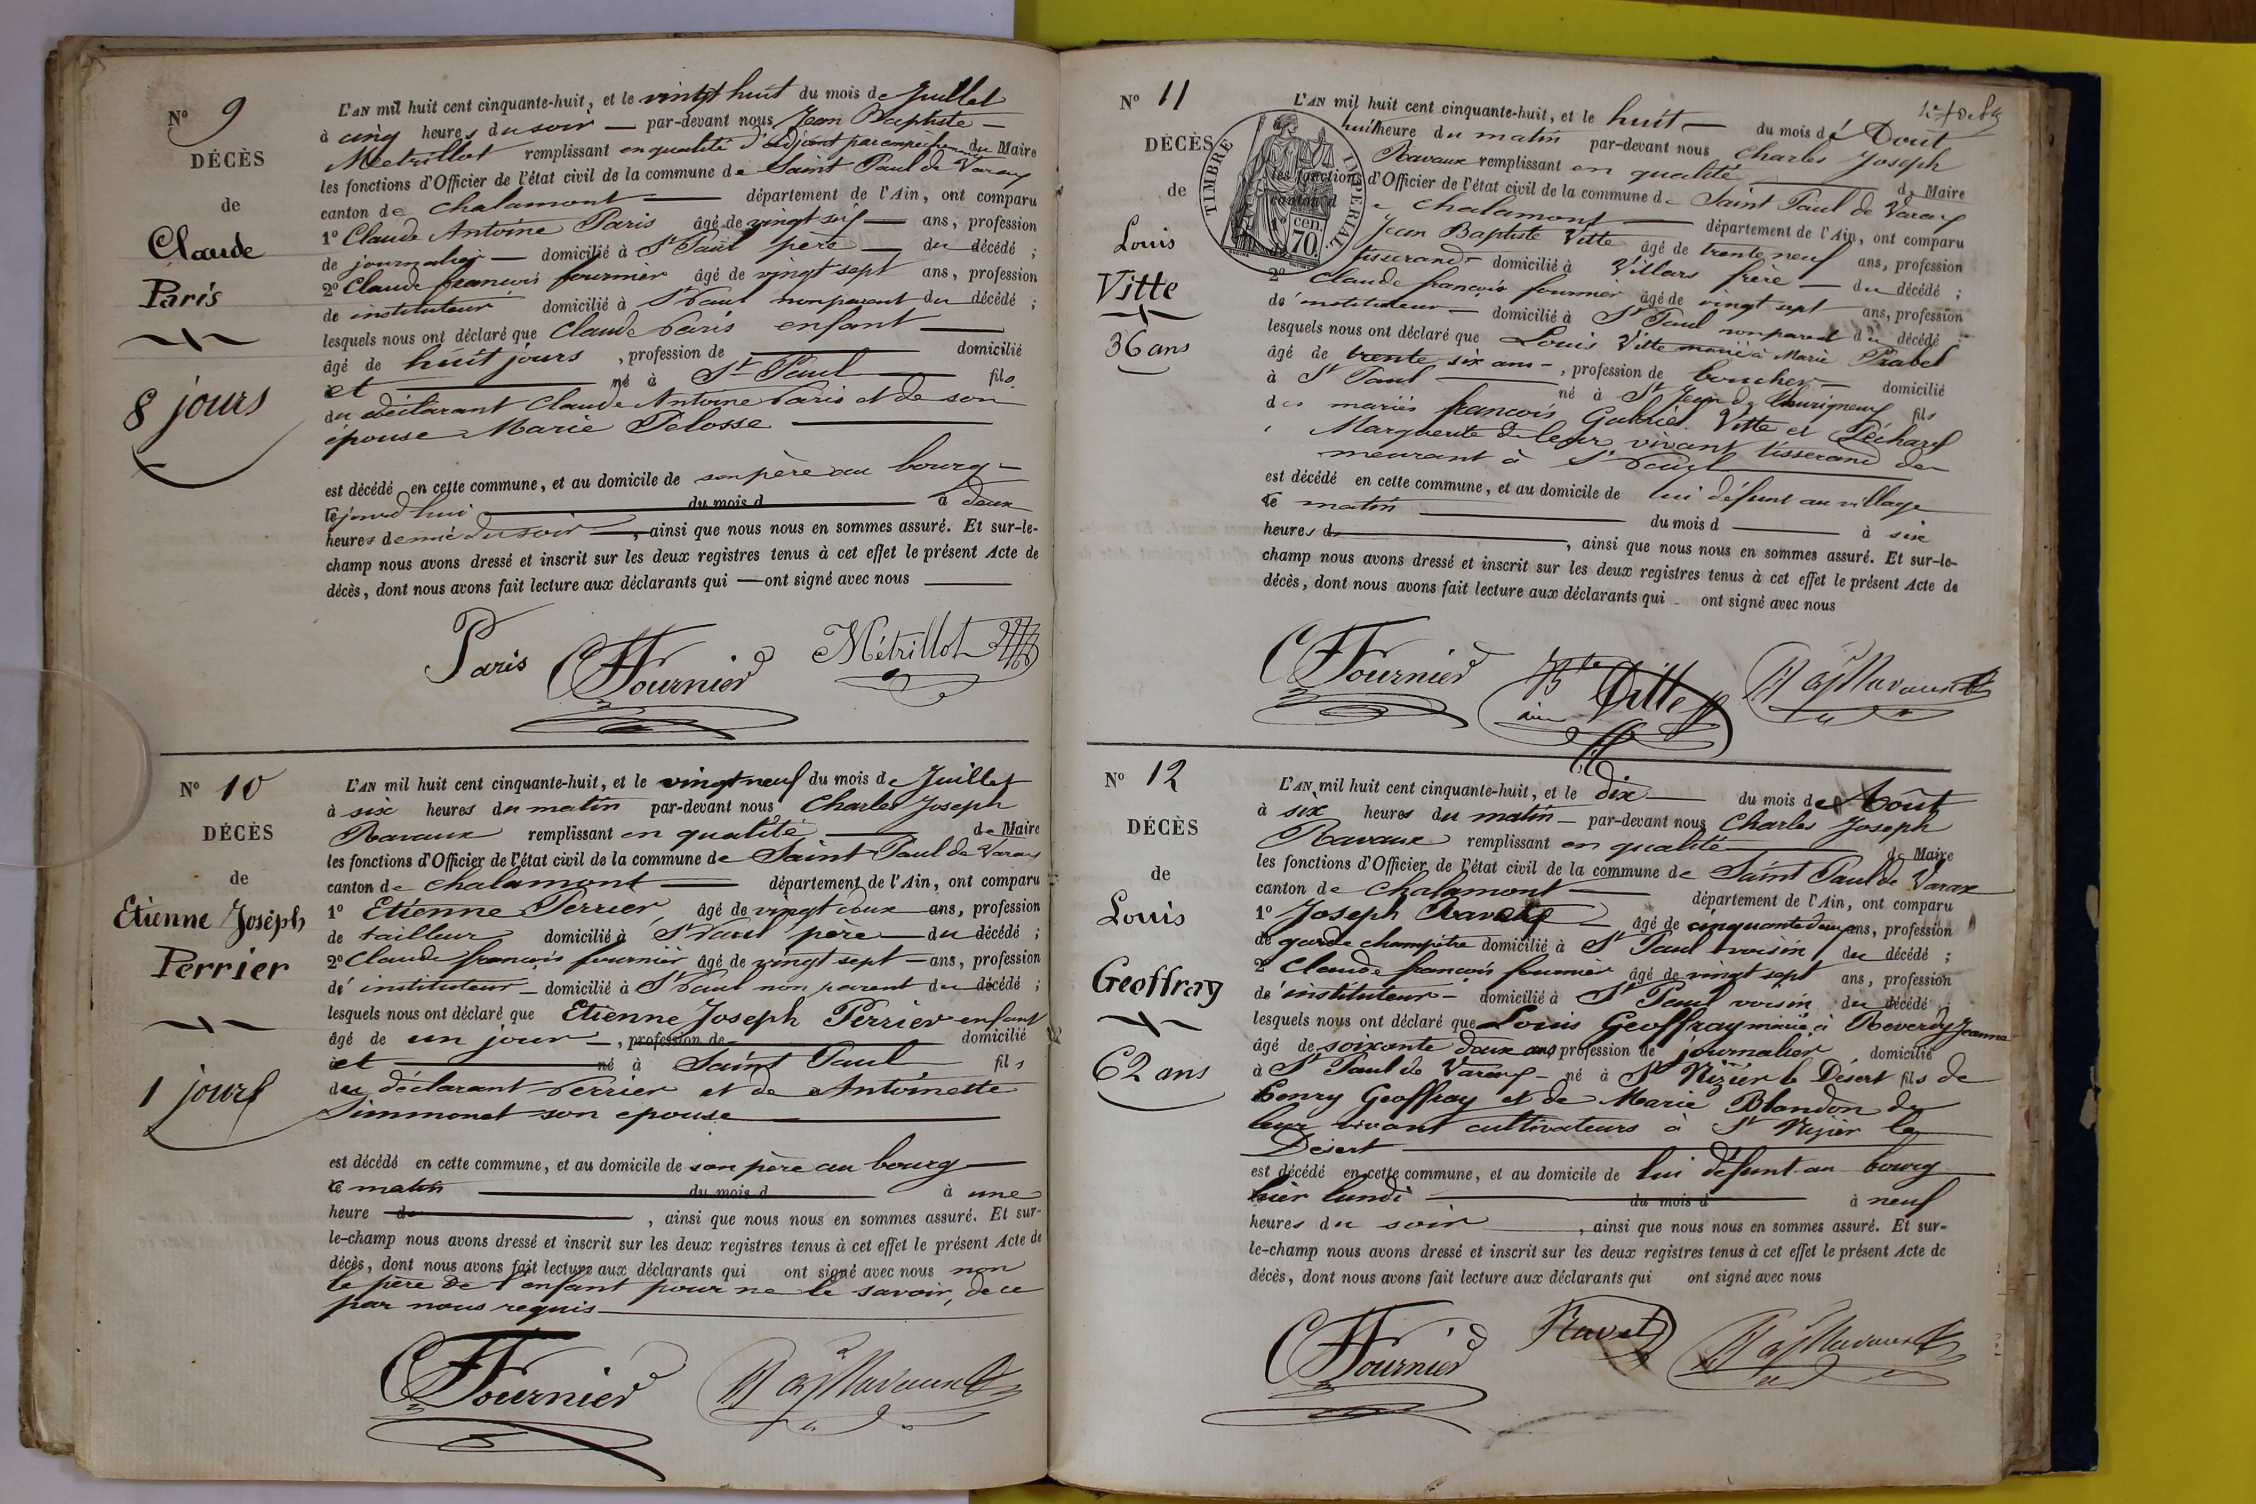 N° 9
DÉCÈS
de
Claude
Paris
8 jours
L'AN mil huit cent cinquante-huit, et le vingt huit du mois de Juillet
à cinq heures du soir — par-devant nous Jean Baptiste —
Metrillot remplissant en qualité d'adjoint par empêchement du Maire
les fonctions d'Officier de l'état civil de la commune de Saint Paul de Varax
canton de chalamont — département de l'Ain, ont comparu
1° Claude Antoine Paris âgé de vingt six — ans, profession
de journalier — domicilié à St Paul père — du décédé ;
2° Claude francois fournier âgé de vingt sept ans, profession
de instituteur domicilié à St Paul non parent du décédé ;
lesquels nous ont déclaré que Claude Paris enfant —
âgé de huit jours , profession de — domicilié
et — né à St Paul — fils
du déclarant Claude Antoine Paris et de son
épouse Marie Pelosse —
est décédé en cette commune, et au domicile de son père au bourg —
du mois d — à deux
heures demie du soir —, ainsi que nous nous en sommes assuré. Et sur-le-
champ nous avons dressé et inscrit sur les deux registres tenus à cet effet le présent Acte de
décès, dont nous avons fait lecture aux déclarants qui — ont signé avec nous —
Paris CF Fournier Métrillot
N° 10
DÉCÈS
de
Etienne Joseph
Perrier
1 jour
L'AN mil huit cent cinquante-huit, et le vingt neuf du mois de Juillet
à six heures du matin par-devant nous Charles Joseph
Ravaux remplissant en qualité — de Maire
les fonctions d'Officier de l'état civil de la commune de Saint Paul de Varax
canton de chalamont — département de l'Ain, ont comparu
1° Etienne Perrier, âgé de vingt deux ans, profession
de tailleur domicilié à St Paul père — du décédé ;
2° Claude francois fournier âgé de vingt sept — ans, profession
de instituteur — domicilié à St Paul non parent du décédé ;
lesquels nous ont déclaré que Etienne Joseph Perrier enfant
âgé de un jour —, profession de — domicilié
et — né à Saint Paul — fils
du déclarant Perrier et de Antoinette
Simmonet son epouse —
est décédé en cette commune, et au domicile de son père au bourg —
le matin — du mois d — à une
heure de —, ainsi que nous nous en sommes assuré. Et sur-
le-champ nous avons dressé et inscrit sur les deux registres tenus à cet effet le présent Acte de
décès, dont nous avons fait lecture aux déclarants qui ont signé avec nous non
le père de l'enfant pour ne le savoir, de ce
par nous requis —
CF Fournier Ravaux
N° 11
DÉCÈS
de
Louis
Vitte
36 ans
TIMBRE IMPERIAL
cen.
70.
L'AN mil huit cent cinquante-huit, et le huit — du mois d'Août
à huit heure du matin par-devant nous Charles Joseph
Ravaux remplissant en qualité — de Maire
les fonctions d'Officier de l'état civil de la commune de Saint Paul de Varax
canton de chalamont — département de l'Ain, ont comparu
1° Jean Baptiste Vitte âgé de trente neuf ans, profession
de tisserand — domicilié à Villars frère — du décédé ;
2° Claude francois fournier âgé de vingt sept ans, profession
de instituteur — domicilié à St Paul non parent du décédé ;
lesquels nous ont déclaré que Louis Vitte marié à Marie Prabel
âgé de trente six ans —, profession de boucher — domicilié
à St Paul — né à St Jean de thurigneux fils
des mariés francois Gabriel Vitte et Péchard
Marguerite de leur vivant tisserand de
meurant à St Paul —
est décédé en cette commune, et au domicile de lui défunt au village
le matin — du mois d — à six
heures d —, ainsi que nous nous en sommes assuré. Et sur-le-
champ nous avons dressé et inscrit sur les deux registres tenus à cet effet le présent Acte de
décès, dont nous avons fait lecture aux déclarants qui ont signé avec nous
CF Fournier Bte Vitte Ravaux
N° 12
DÉCÈS
de
Louis
Geoffray
62 ans
L'AN mil huit cent cinquante-huit, et le dix — du mois de Août
à six heures du matin — par-devant nous Charles Joseph
Ravaux remplissant en qualité — de Maire
les fonctions d'Officier de l'état civil de la commune de Saint Paul de Varax
canton de Chalamont — département de l'Ain, ont comparu
1° Joseph Ravet — âgé de cinquante deux ans, profession
de garde champêtre domicilié à St Paul voisin du décédé ;
2° Claude francois fournier âgé de vingt sept ans, profession
de instituteur — domicilié à St Paul voisin du décédé ;
lesquels nous ont déclaré que Louis Geoffray marié à Reverdy Jeanne
âgé de soixante deux ans profession de journalier domicilié
à St Paul de Varax — né à St Nizier le Désert fils de
henry Geoffray et de Marie Blandon de
leur vivant cultivateurs à St Nizier le
Désert —
est décédé en cette commune, et au domicile de lui défunt au bourg
hier lundi — du mois d — à neuf
heures du soir —, ainsi que nous nous en sommes assuré. Et sur-
le-champ nous avons dressé et inscrit sur les deux registres tenus à cet effet le présent Acte de
décès, dont nous avons fait lecture aux déclarants qui ont signé avec nous
CF Fournier Ravet Ravaux